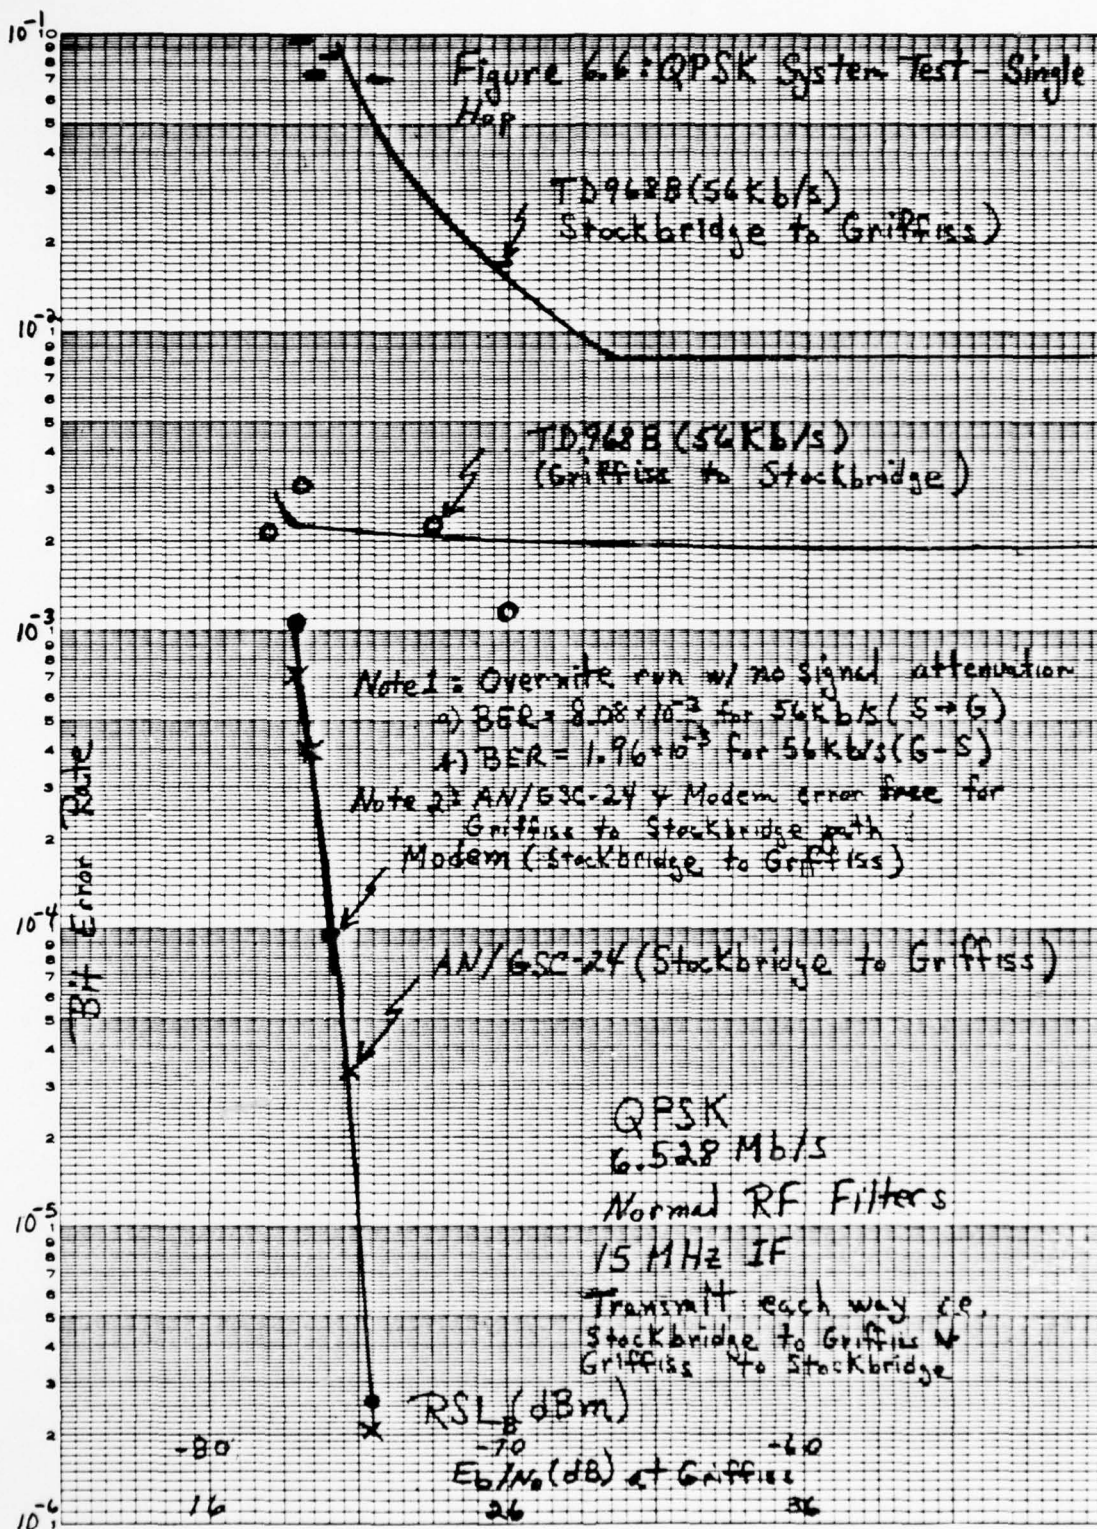 Figure 6.6: QPSK System Test - Single
Hop
TD968B (56Kb/s)
Stockbridge to Griffiss)
TD968B (56Kb/s)
(Griffiss to Stockbridge)
Note 1: Overnite run w/ no signal attenuation
a) BER = 8.08 × 10^-3 for 56Kb/s (S→G)
BER = 1.96 × 10^-3 for 56Kb/s (G-S)
Note 2: AN/GSC-24 + Modem error free for
Griffiss to Stockbridge path
Modem (Stockbridge to Griffiss)
AN/GSC-24 (Stockbridge to Griffiss)
QPSK
6.528 Mb/s
Normal RF Filters
15 MHz IF
Transmit each way i.e.
Stockbridge to Griffiss +
Griffiss to Stockbridge
Bit Error Rate
10^-1 10
9
8
7
6
5
4
3
2
10^-2 1
9
8
7
6
5
4
3
2
10^-3 1
9
8
7
6
5
4
3
2
10^-4 1
9
8
7
6
5
4
3
2
10^-5 1
9
8
7
6
5
4
3
2
10^-6 1
RSL (dBm)
-80 -70 -60
Eb/No (dB) at Griffiss
16 26 36